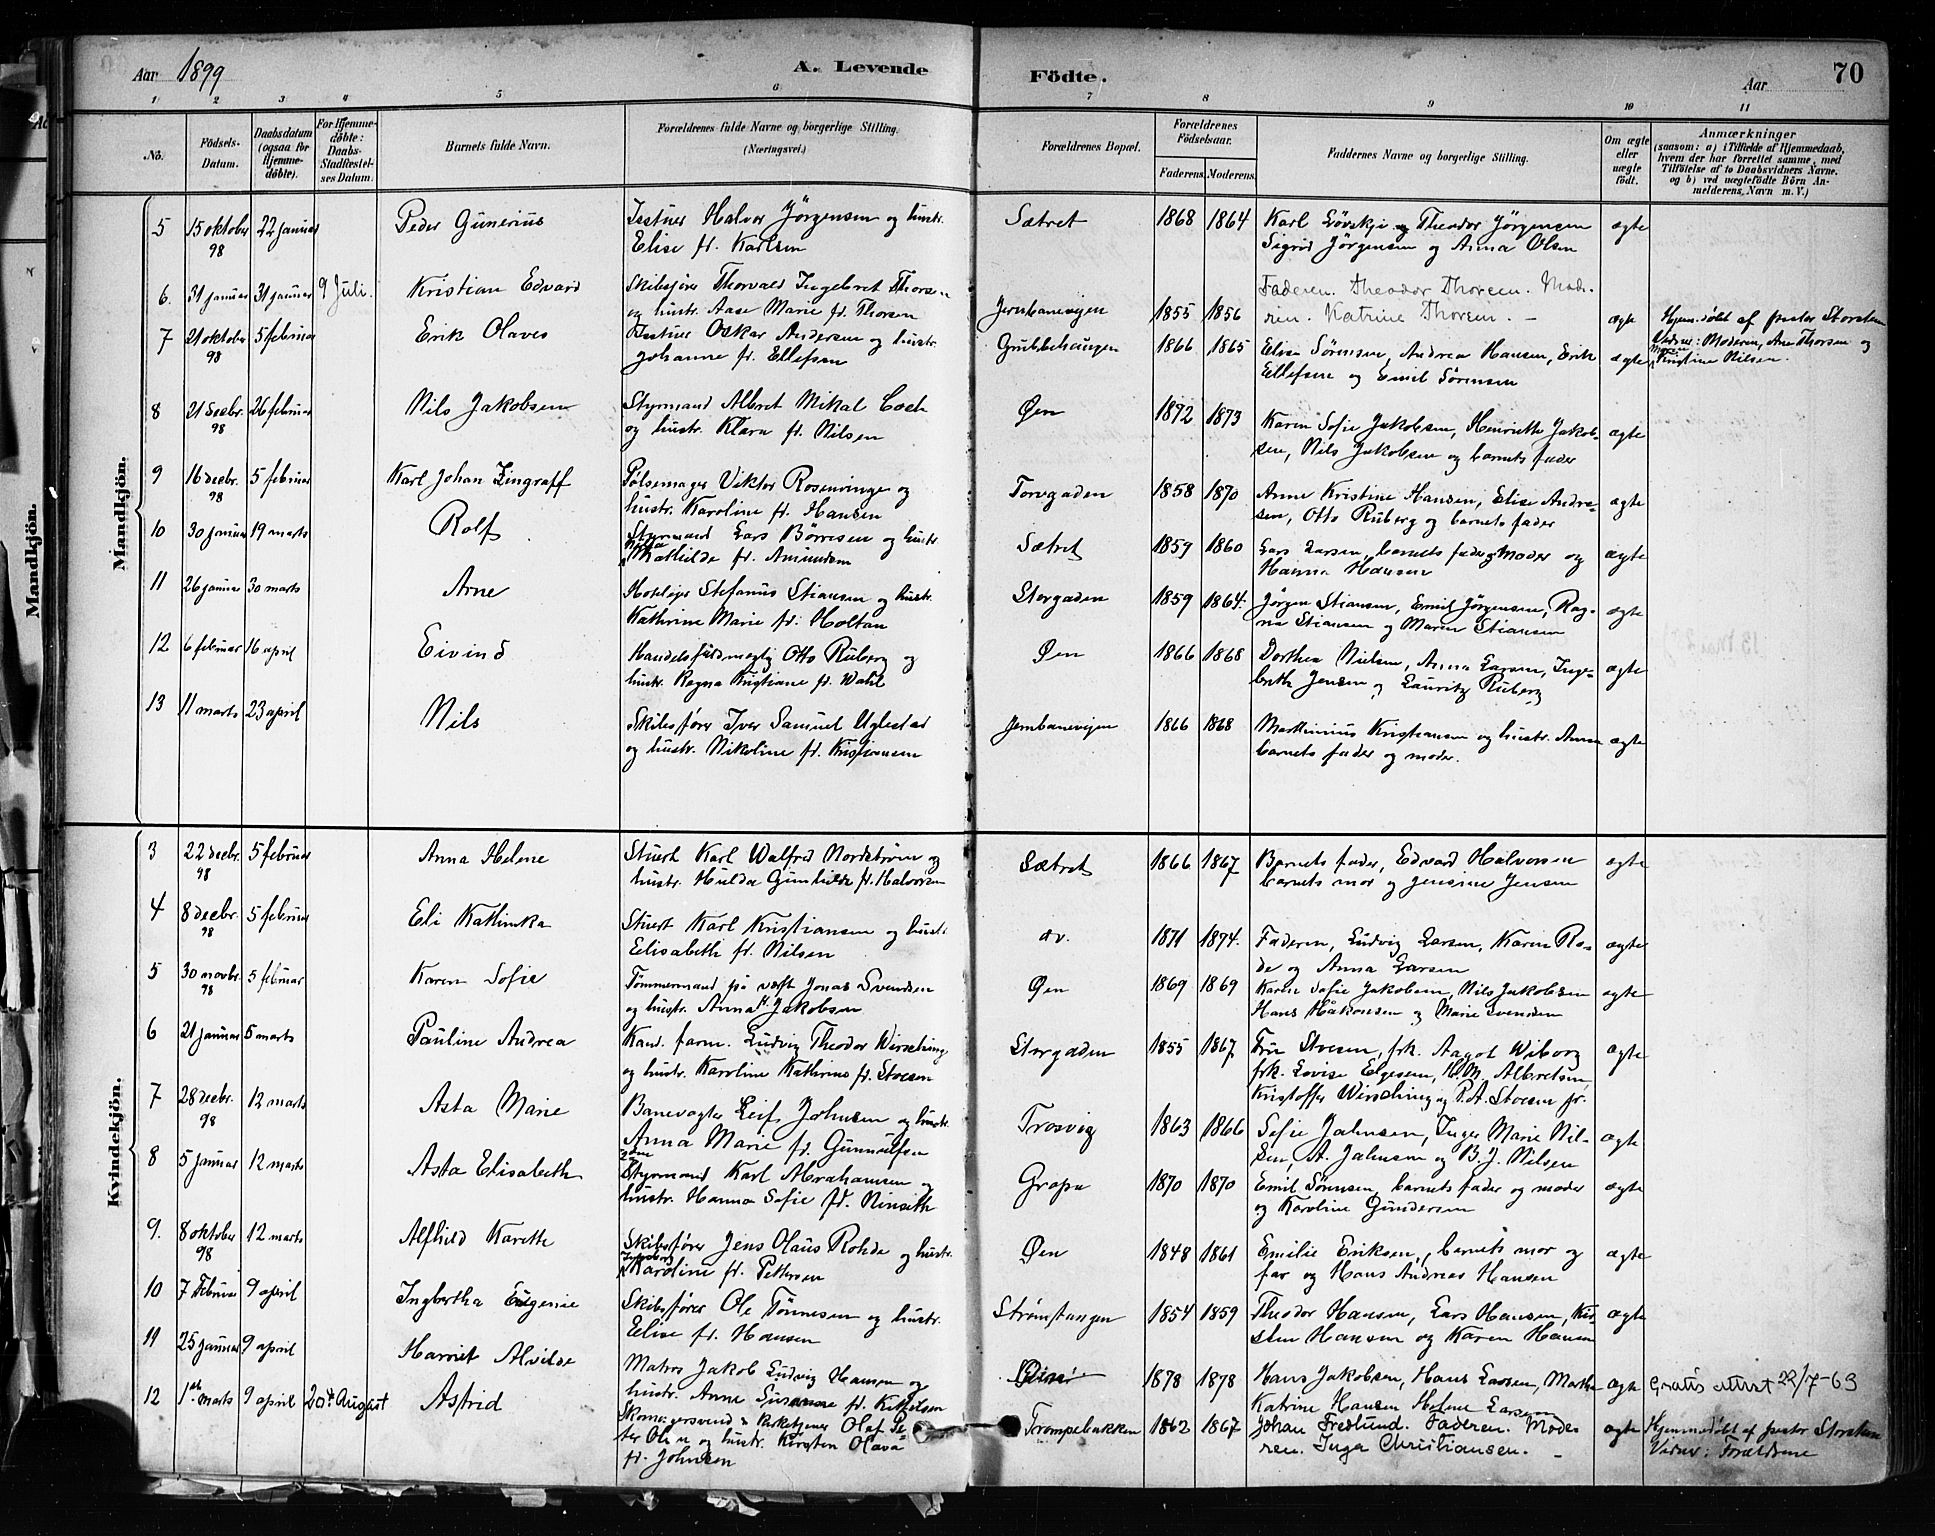 Aar 1899 A. Levende Födte. Aar 70
1 2 3 4 5 6 7 8 9 10 11
No. Födsels-Datum. Daabsdatum (ogsaa for Hjemme-døbte). For Hjemme-døbte: Daabs-Stadfæstel-ses Datum. Barnets fulde Navn. Forældrenes fulde Navne og borgerlige Stilling. (Næringsvei.) Forældrenes Bopæl. Forældrenes Födselsaar. Faderens. Moderens. Faddernes Navne og borgerlige Stilling. Om ægte eller uægte født. Anmærkninger (saasom: a) i Tilfælde af Hjemmedaab, hvem der har forrettet samme, med Tilføielse af to Daabsvidners Navne. og b) ved uægtefödte Börn An-melderens Navn m. V.)
Mandkjön.
5 15 oktober 98 22 januar Peder Gunerius
Halvor Jörgensen og hustr.
Elise fd. Karlsen
Sætret 1868 1864
Karl Lövskje og Theodor Jörgensen
Sigrid Jörgensen og Anna Olsen
ægte
6. 31 januar 31 januar 9 Juli. Kristian Edvard
Skibsfører Thorvald Ingebret Thorsen
og hustr. Aase Marie fd. Thorsen
Jernbanevejen 1855 1856
Faderen. Theodor Thorsen. Mode-
ren. Katrine Thorsen. —
ægte
Hjem.døbt af pastor Storsten
Vidner: Moderen, Ane Thorsen og
Kristine Nilsen.
7 21 oktober 98 5 februar Erik Olaves
Oskar Andersen og hustr.
Johanne fd. Ellefsen
Grubbehaugen 1866 1865
Elise Sørensen, Andrea Hansen, Erik
Ellefsen og Emil Sørensen
ægte
8 21 decbr. 98 26 februar Nils Jakobsen
Styrmand Albret Mikal Coch
og hustr. Klara fd. Nilsen
Øen 1872 1873
Karen Sofie Jakobsen, Henriette Jakob-
sen, Nils Jakobsen og barnets fader
ægte
9 16 decbr. 98 5 februar Karl Johan Zingraff
Pølsemager Viktor Rosenvinge og
hustr. Karoline fd. Hansen
Torvgaden 1858 1870
Anne Kristine Hansen, Elise Andre-
sen, Otto Ruberg og barnets fader
ægte
10 30 januar 19 marts Rolf
Styrmand Lars Börresen og hustr
Mathilde fd. Amundsen
Sætret 1859 1860
Lars Larsen, barnets fader og Moder og
Hanna Hansen
ægte
11 26 januar 30 marts Arne
Hotelejer Stefanus Stiansen og hustr.
Kathrine Marie fd. Holtan
Storgaden 1859 1864.
Jörgen Stiansen, Emil Jörgensen, Rag-
na Stiansen og Maren Stiansen
ægte
12 6 februar 16 april Eivind
Handelsfuldmægtig Otto Ruberg og
hustr. Ragna Kristiane fd. Wahl
Øen 1866 1868
Dorthea Nielsen, Anna Larsen, Inge-
breth Jensen og Lauritz Ruberg
ægte
13 11 marts 23 april Nils
Skibsfører Iver Samuel Uglestad
og hustr. Nikoline fd. Kristiansen
Jernbanevejen 1866 1868
Marthinius Kristiansen og hustr. Anna
barnets fader og moder.
ægte
Kvindekjön.
3 22 decbr. 98 5 februar Anna Helene
Stuert Karl Walfrid Nordström og
hustr. Hulda Gunhilda fd. Halvorsen
Sætret 1866 1867
Barnets fader, Edvard Halvorsen
barnets mor og Jensine Jensen
ægte
4 8 decbr. 98 5 februar Eli Kathinka
Stuert Karl Kristiansen og hustr.
Elisabeth fd. Nilsen
do. 1871 1874.
Faderen, Ludvig Larsen, Karen Ro-
de og Anna Larsen
ægte
5 30 novbr. 98 5 februar Karen Sofie
Tömmermand på verft Jonas Svendsen
og hustr. Anna fd. Jakobsen
Øen 1869 1869
Karen Sofie Jakobsen, Nils Jakobsen
Hans Håkonsen og Marie Svendsen
ægte
6 21 januar 5 marts Pauline Andrea
Kand. farm. Ludvig Theodor Wirsching
og hustr. Karoline Kathrine fd. Stoesen
Storgaden 1855 1867
Fru Stoesen, frk. Aagot Wiborg
frk. Lovise Elgesem, H.M. Albretsen,
Kristoffer Wirsching og P.A. Stoesen jr.
ægte
7 28 decbr. 98 12 marts Asta Marie
Banevogter Leif Johnsen og hustr.
Anna Marie fd. Gunnulfsen
Trosvig 1863 1866
Sofie Johnsen, Inger Marie Nil-
sen, A. Johnsen og B. J. Nilsen
ægte
8 5 januar 12 marts Asta Elisabeth
Styrmand Karl Abrahamsen og
hustr. Hanna Sofie fd. Ninseth
Grapa 1870 1870
Emil Sönnsen, barnets fader og moder
og Karoline Gundersen
ægte
9. 8 oktober 98 12 marts Alfhild Karethe
Skibsfører Jens Olaus Rohde og hustr.
Ingeborg Karoline fd. Pettersen
Øen 1848 1861
Emilie Eriksen, barnets mor og
far og Hans Andreas Hansen
ægte
10 7 Februar 9 april Ingbertha Eugenie
Skibsfører Ole Tönnesen og hustr.
Elise fd. Hansen
Strømstangen 1854 1859
Theodor Hansen, Lars Hansen, Kir-
sten Hansen og Karen Hansen
ægte
11 25 januar 9 april Harriet Alvilde
Matros Jakob Ludvig Hansen og
hustr. Anne Susanne fd. Kittelsen
1878 1878
Hans Jakobsen, Hans Larsen, Marthe
Katrine Hansen Helene Larsen
ægte
Gratis attest 22/7-63
12 1ste marts 9 april 20de August Astrid
Skomagersvend & Kirketjener Olaf Pe-
ter Olsen og hustr. Kirsten Olava
fd. Johnsen
Trompebakken 1862 1867
Johan Fredlund. Faderen. Mode-
ren. Inga Christiansen. —
ægte
Hjemmedøbt af pastor Storsten
Vidner: Forældrene
Mandkjön.